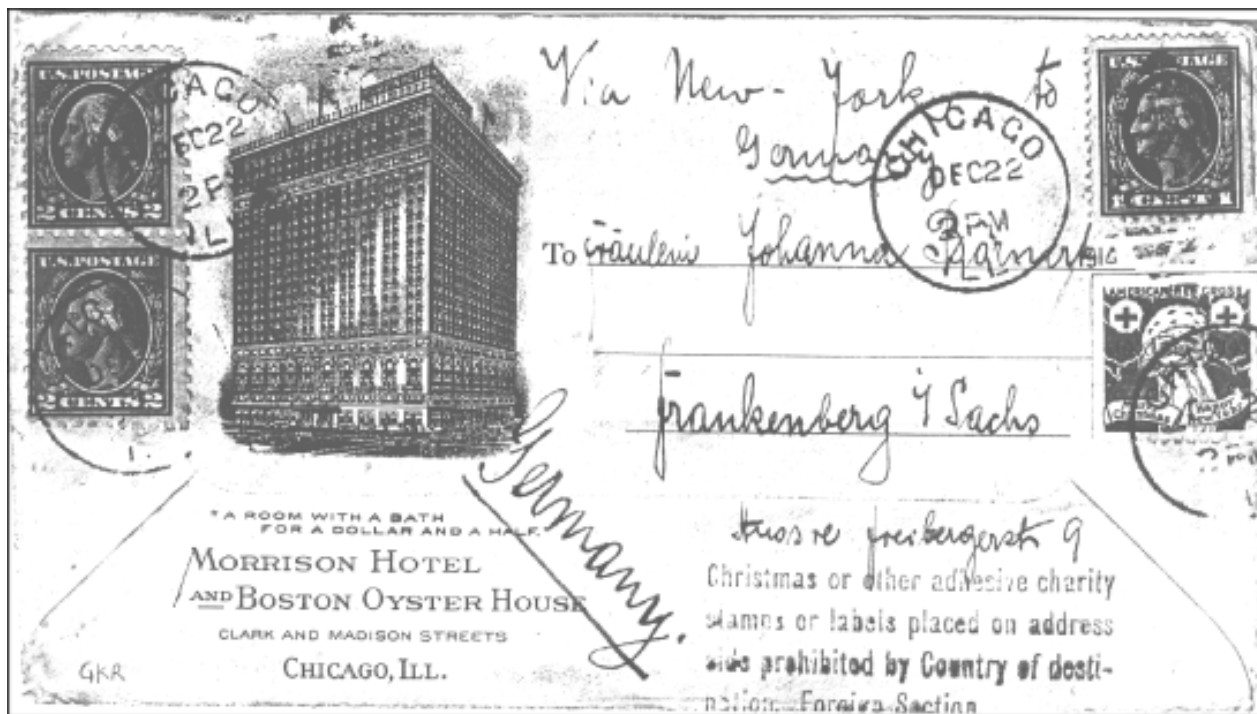 U.S. POSTAGE
2 CENTS 2
U.S. POSTAGE
2 CENTS 2
CAGO
DEC 22
IL
Via New-York to
Germany
CHICAGO
DEC 22
ILL
To Fräulein Johanna
Frankenberg i Sachs
Germany.
Äussre Freibergerstr 9
U.S. POSTAGE
1 1
AMERICAN RED CROSS
"A ROOM WITH A BATH
FOR A DOLLAR AND A HALF"
MORRISON HOTEL
AND BOSTON OYSTER HOUSE
CLARK AND MADISON STREETS
CHICAGO, ILL.
GKR
Christmas or other adhesive charity
stamps or labels placed on address
side prohibited by Country of desti-
nation. Foreign Section